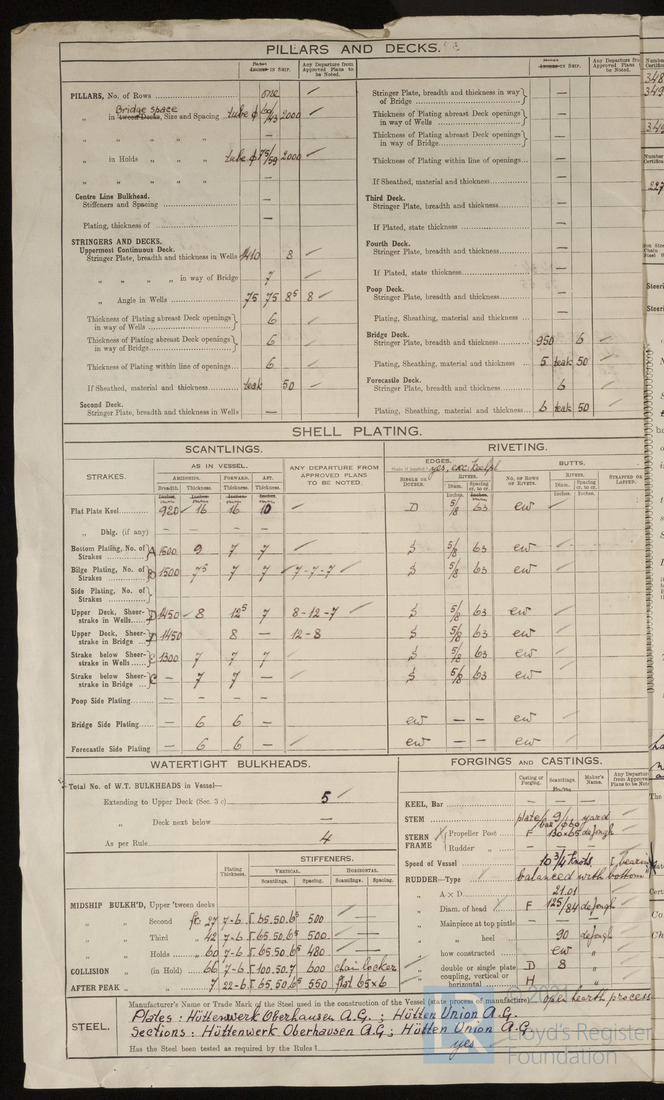 PILLARS AND DECKS.
IN SHIP. Any Departure from Approved Plans to be Noted.
PILLARS, No. of Rows one
Bridge space
„ in 'tween Decks, Size and Spacing tube ϕ 60/43 2000
„ „ „ „ —
„ in Holds „ „ tube ϕ 75/59 2000
„ „ „ „ —
Centre Line Bulkhead.
Stiffeners and Spacing —
Plating, thickness of —
STRINGERS AND DECKS.
Uppermost Continuous Deck.
Stringer Plate, breadth and thickness in Wells 1410 8
„ „ „ „ in way of Bridge 7
„ Angle in Wells 75 75 8⁵ 8
Thickness of Plating abreast Deck openings in way of Wells 6
Thickness of Plating abreast Deck openings in way of Bridge 6
Thickness of Plating within line of openings 6
If Sheathed, material and thickness teak 50
Second Deck.
Stringer Plate, breadth and thickness in Wells —
IN SHIP. Any Departure from Approved Plans to be Noted.
Stringer Plate, breadth and thickness in way of Bridge —
Thickness of Plating abreast Deck openings in way of Wells —
Thickness of Plating abreast Deck openings in way of Bridge —
Thickness of Plating within line of openings —
If Sheathed, material and thickness —
Third Deck.
Stringer Plate, breadth and thickness —
If Plated, state thickness —
Fourth Deck.
Stringer Plate, breadth and thickness —
If Plated, state thickness —
Poop Deck.
Stringer Plate, breadth and thickness —
Plating, Sheathing, material and thickness —
Bridge Deck.
Stringer Plate, breadth and thickness 950 6
Plating, Sheathing, material and thickness 5 teak 50
Forecastle Deck.
Stringer Plate, breadth and thickness 6
Plating, Sheathing, material and thickness 6 teak 50
SHELL PLATING.
SCANTLINGS. RIVETING.
STRAKES. AS IN VESSEL. ANY DEPARTURE FROM APPROVED PLANS TO BE NOTED. EDGES. yes, exc. BUTTS.
AMIDSHIPS. FORWARD. AFT. SINGLE OR DOUBLE. RIVETS. NO. OF ROWS OF RIVETS. RIVETS. STRAPPED OR LAPPED.
Breadth. Thickness. Thickness. Thickness. Diam. Spacing cr. to cr. Diam. Spacing cr. to cr.
Flat Plate Keel 920 16 16 10 D 5/8 63 ew
„ Dblg. (if any) — — — —
Bottom Plating, No. of Strakes A 1500 9 7 7 S 5/8 63 ew
Bilge Plating, No. of Strakes B 1500 7⁵ 7 7 7-7-7 S 5/8 63 ew
Side Plating, No. of Strakes
Upper Deck, Sheerstrake in Wells D 1450 8 12⁵ 7 8-12-7 S 5/8 63 ew
Upper Deck, Sheerstrake in Bridge D 1450 8 — 12-8 S 5/8 63 ew
Strake below Sheerstrake in Wells C 1300 7 7 7 S 5/8 63 ew
Strake below Sheerstrake in Bridge C — 7 7 — S 5/8 63 ew
Poop Side Plating — — — —
Bridge Side Plating — 6 6 — ew — — ew
Forecastle Side Plating — 6 6 — ew — — ew
WATERTIGHT BULKHEADS.
Total No. of W.T. BULKHEADS in Vessel—
Extending to Upper Deck (Sec. 3 c) 5
„ Deck next below —
As per Rule 4
STIFFENERS.
Plating Thickness. VERTICAL. HORIZONTAL.
Scantlings. Spacing. Scantlings. Spacing.
MIDSHIP BULKH'D, Upper 'tween decks
„ „ Second „ 27 7-6 65.50.6⁵ 500 —
„ „ Third „ 42 7-6 65.50.6⁵ 500 —
„ „ Holds 60 7-6 65.50.6⁵ 480 —
COLLISION „ (in Hold) 66 7-6 100.50.7 600 chain locker
AFTER PEAK „ „ 7 22-6 65.50.6⁵ 550 flat 65x6
FORGINGS AND CASTINGS.
Casting or Forging. Scantlings. Maker's Name. Any Departure from Approved Plans to be Noted.
KEEL, Bar — — —
STEM plate/bar yard
STERN FRAME Propeller Post F 130x65 de Jongh
Rudder „ —
Speed of Vessel 10 3/4 knots
RUDDER—Type balanced with bottom bearing
„ A x D 21.01
„ Diam. of head F 125/84 de Jongh
„ Mainpiece at top pintle — — —
„ „ heel 90 de Jongh
„ how constructed ew „
„ double or single plate D 8 „
„ coupling, vertical or horizontal H
STEEL.
Manufacturer's Name or Trade Mark of the Steel used in the construction of the Vessel (state process of manufacture) open hearth process
Plates : Hüttenwerk Oberhausen A.G. ; Hütten Union A.G.
Sections : Hüttenwerk Oberhausen A.G ; Hütten Union A.G.
Has the Steel been tested as required by the Rules ? yes
© 2021
Lloyd's Register
Foundation